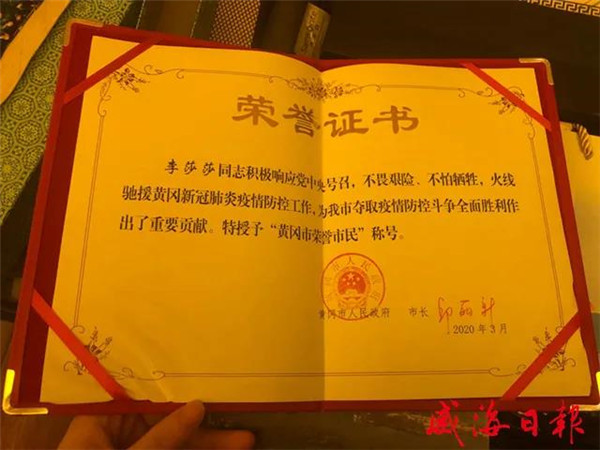 荣誉证书
李莎莎同志积极响应党中央号召，不畏艰险、不怕牺牲，火线
驰援黄冈新冠肺炎疫情防控工作，为我市夺取疫情防控斗争全面胜利作
出了重要贡献。特授予“黄冈市荣誉市民”称号。
黄冈市人民政府
黄冈市人民政府 市长 邱丽新
2020年3月
威海日報